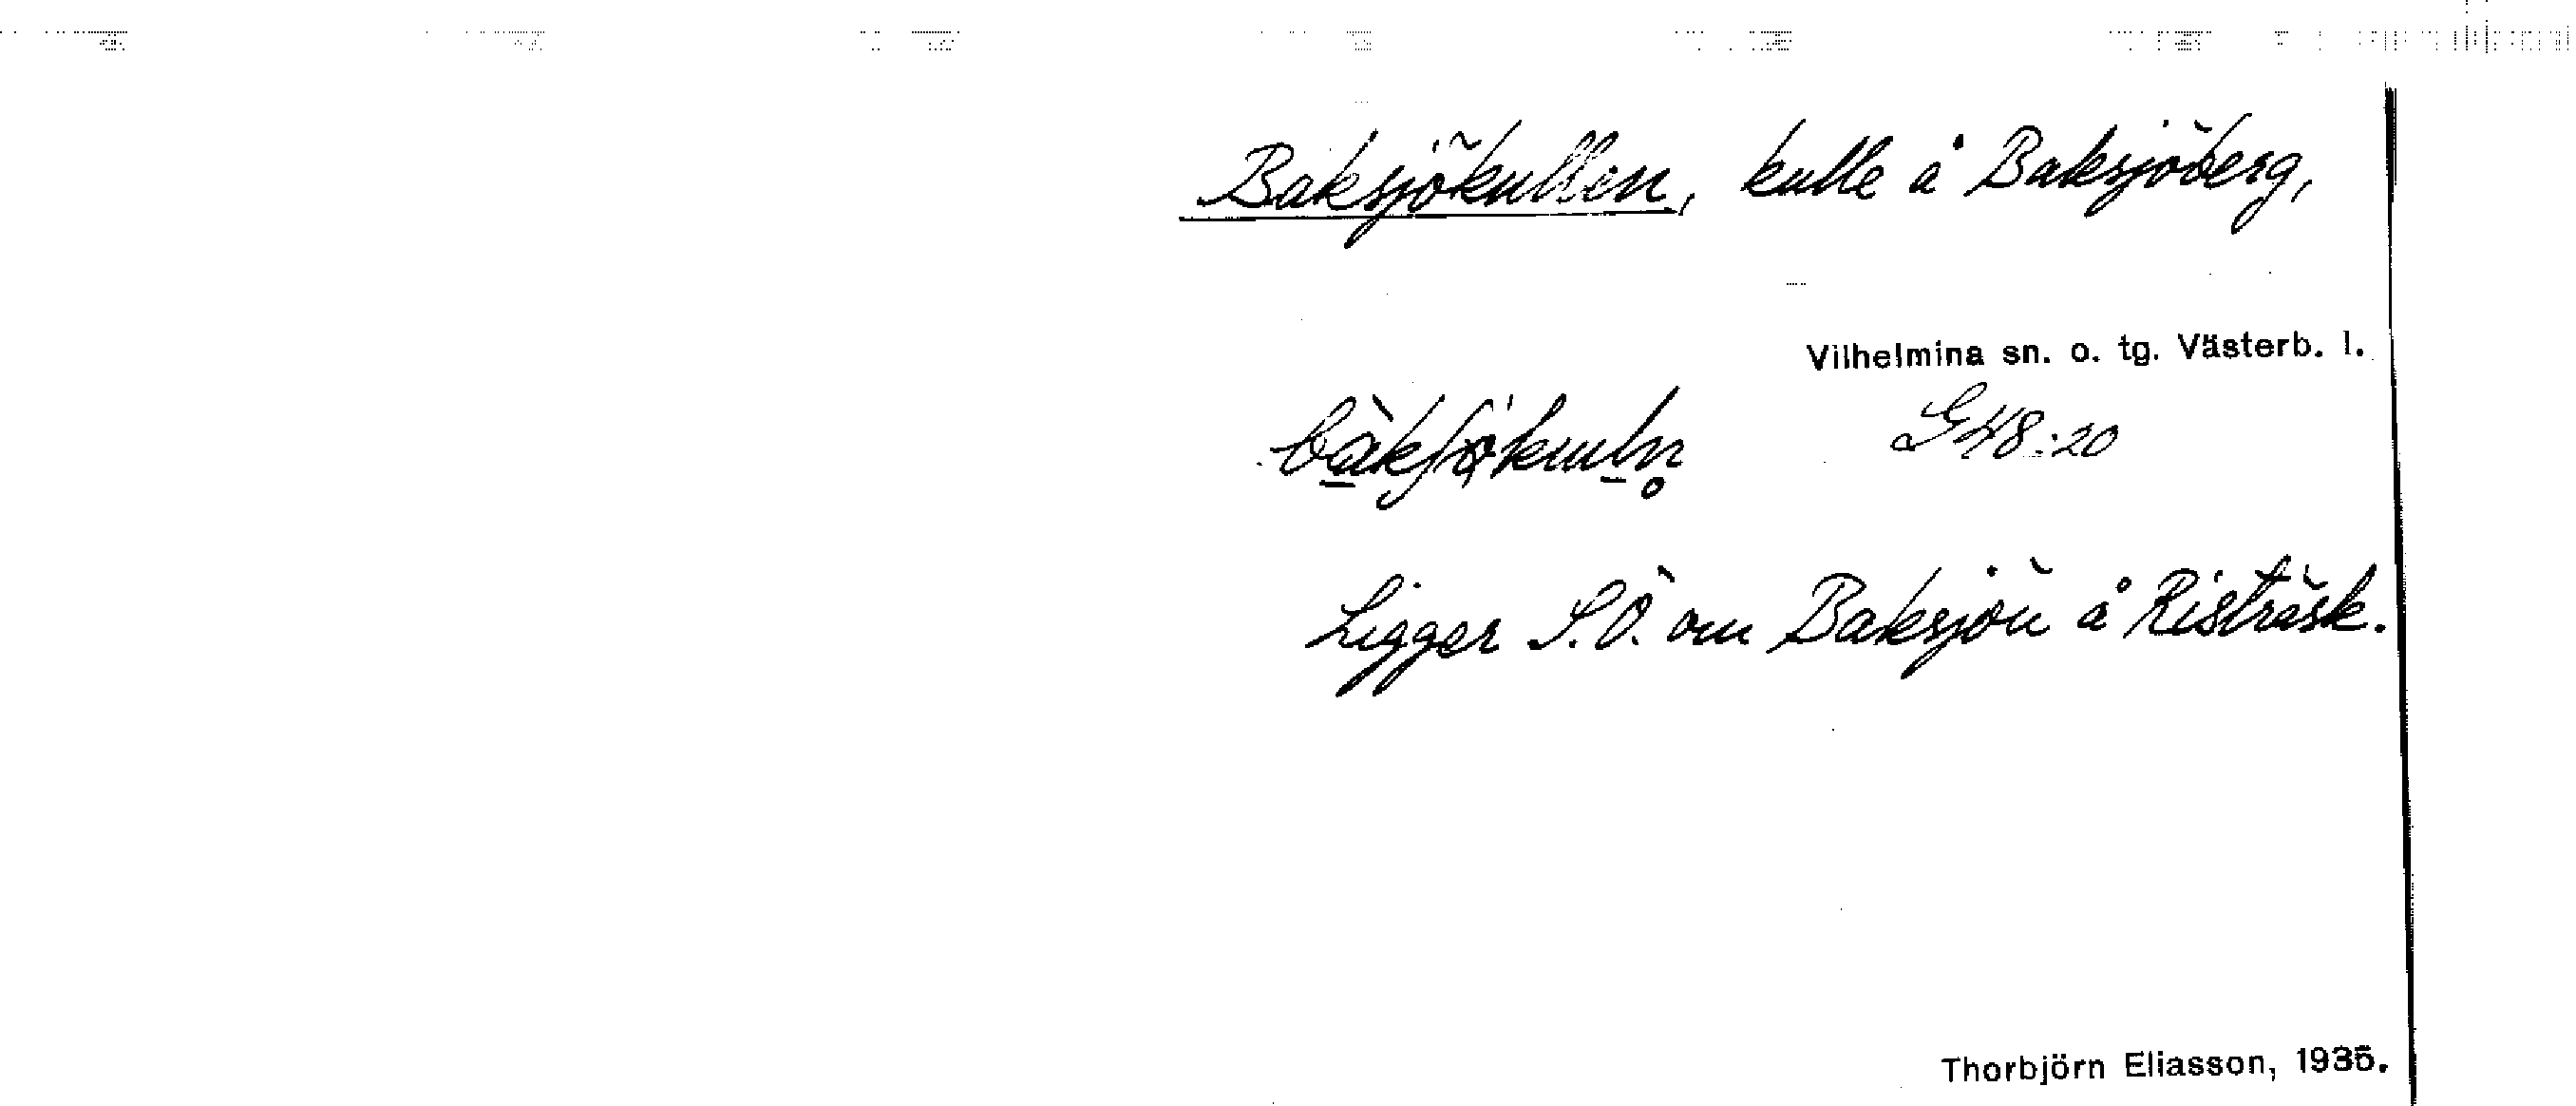 Baksjökullen, kulle å Baksjöberg,
Vilhelmina sn. o. tg. Västerb. l.
G48:20
Ligger S.Ö. om Baksjön å Risträsk.
Thorbjörn Eliasson, 1935.